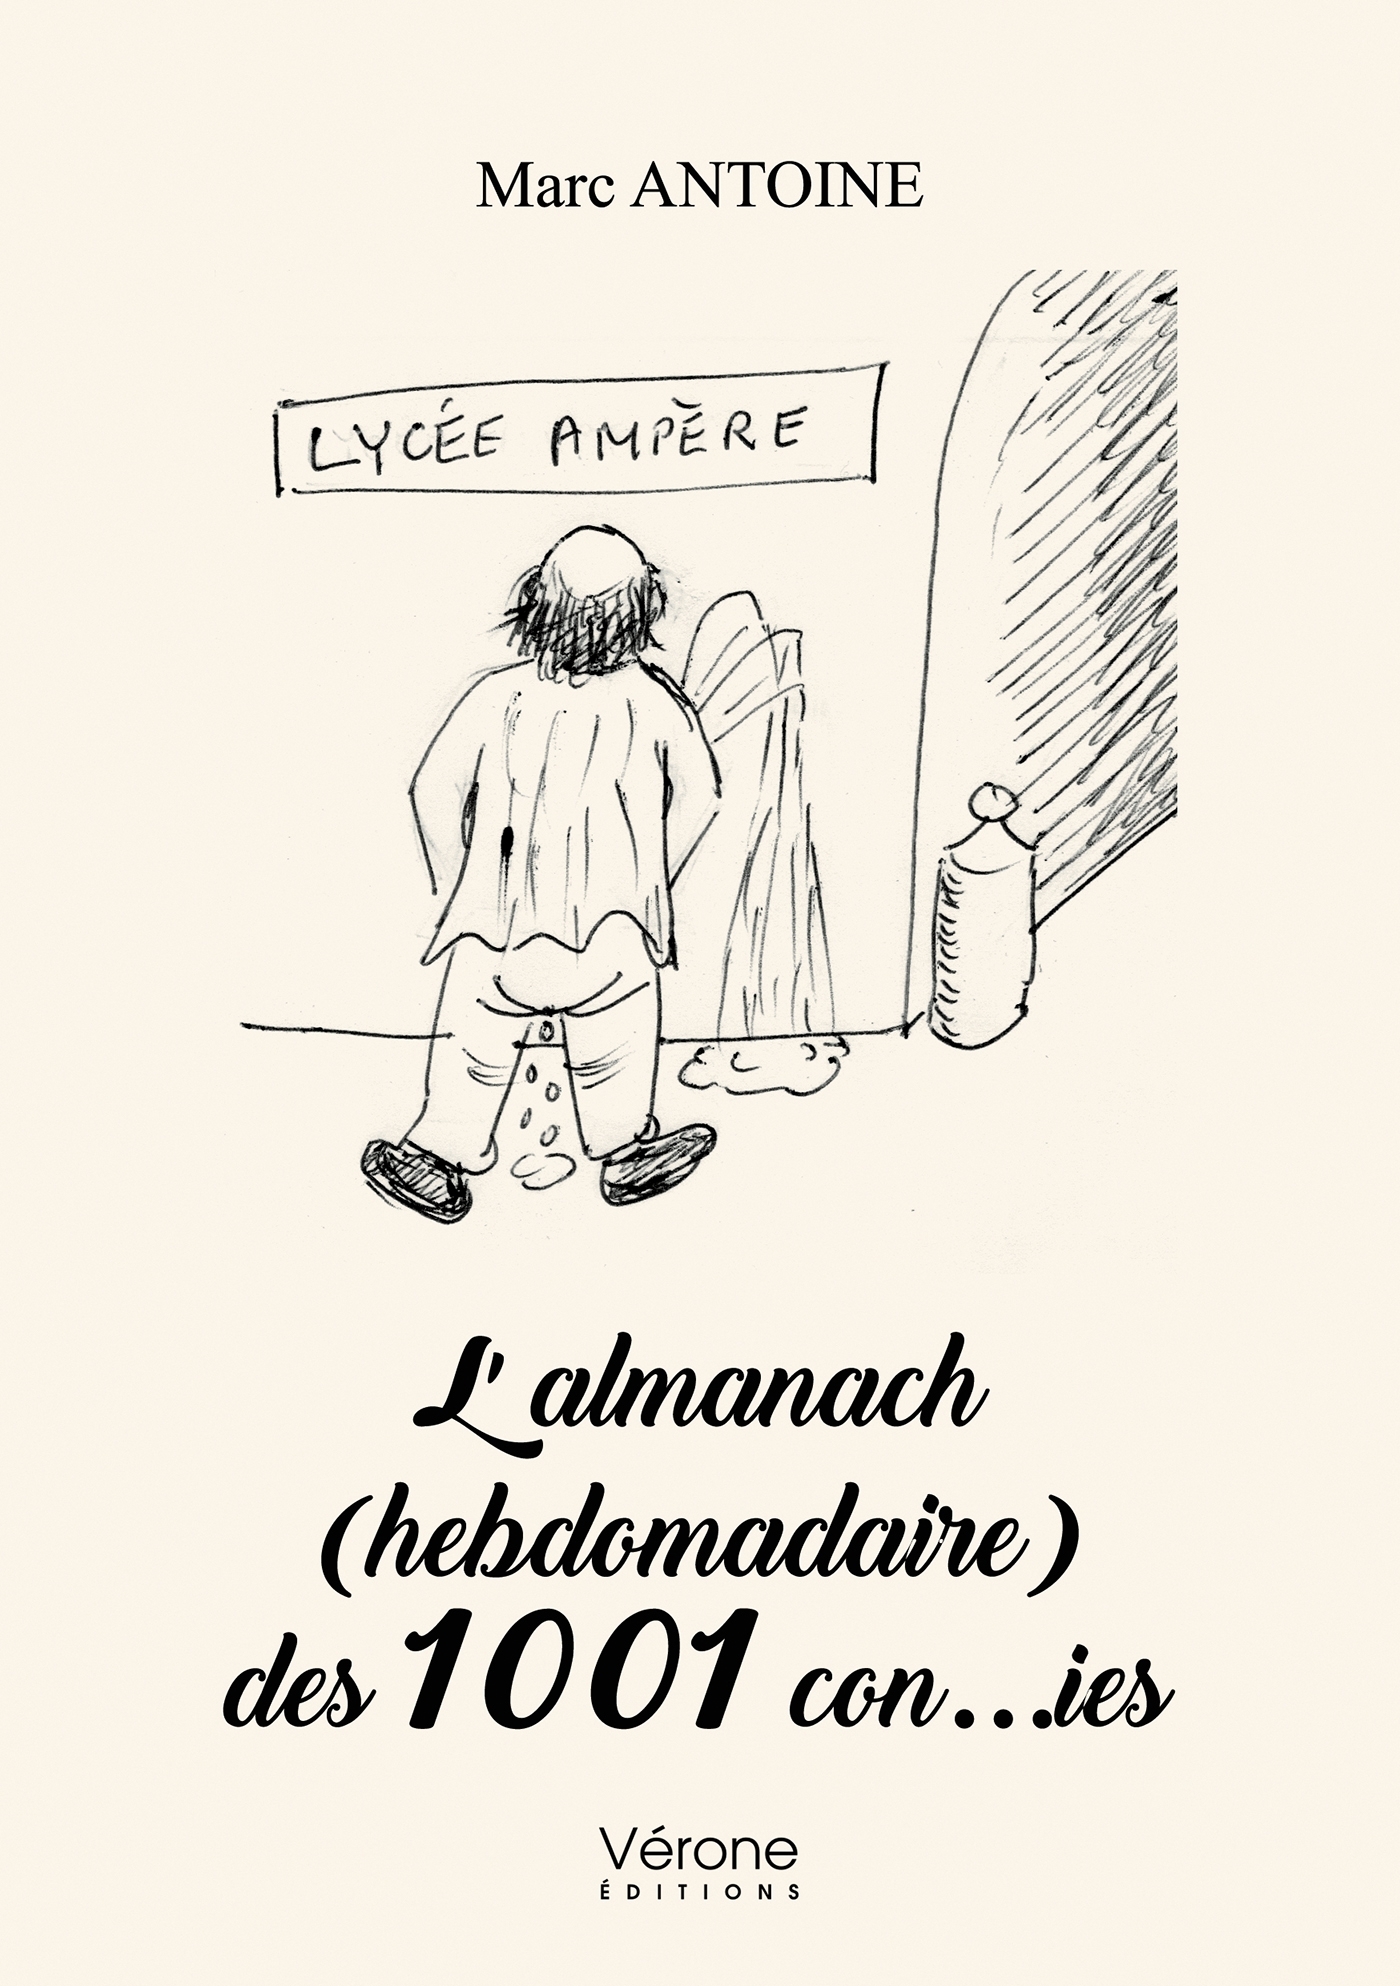 Marc ANTOINE
LYCÉE AMPÈRE
L'almanach
(hebdomadaire)
des 1001 con...ies
Vérone
ÉDITIONS